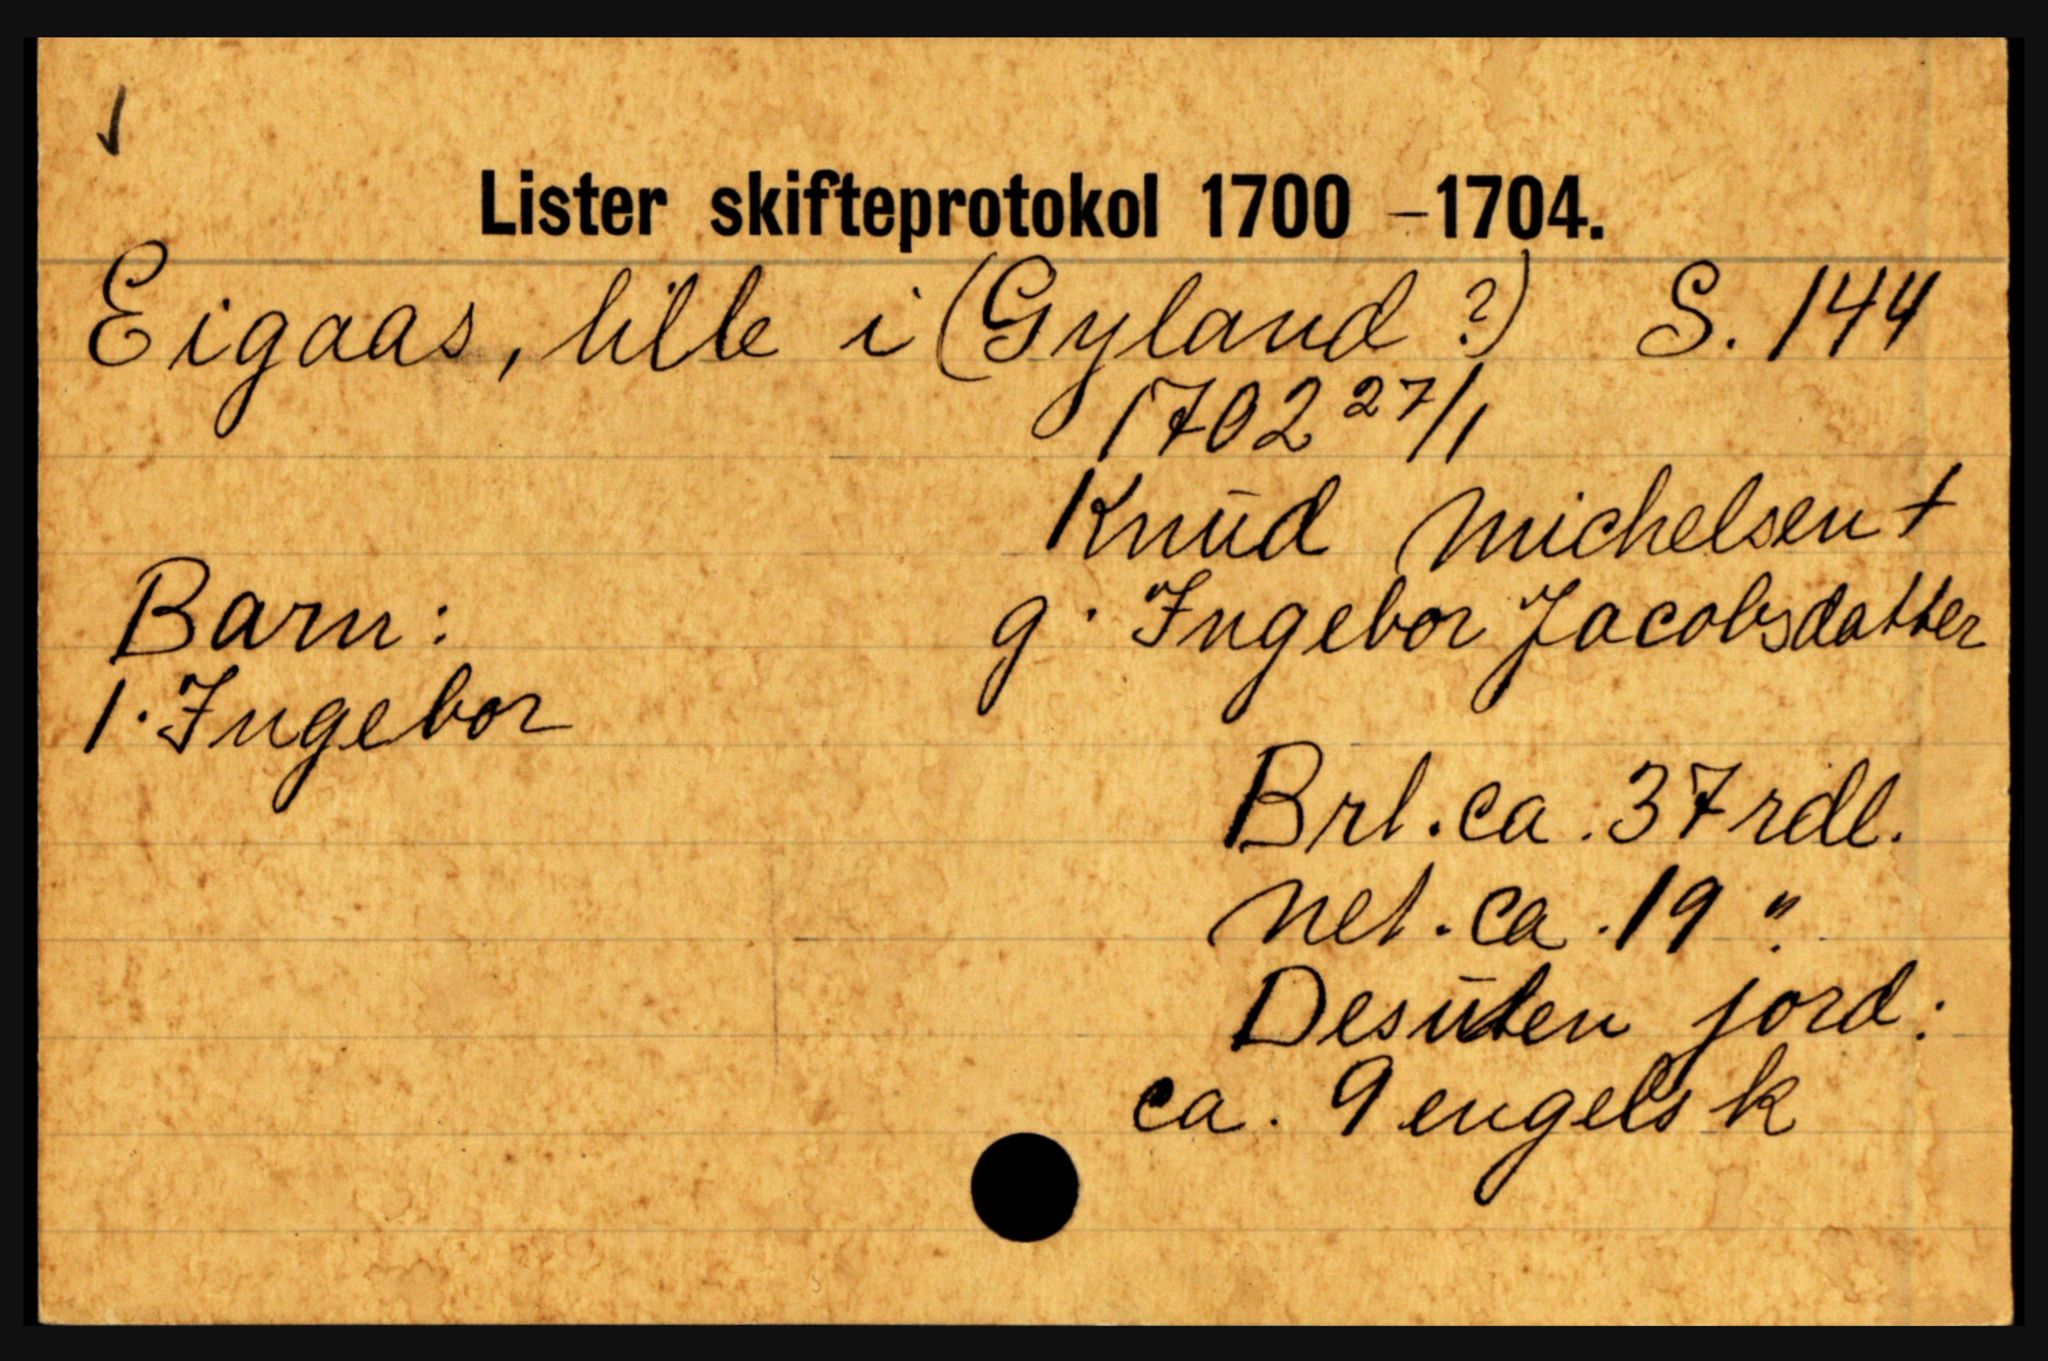 Lister skifteprotokol 1700 – 1704.
Eigaas, lille i (Gyland ?) S. 144
1702 27/1
Knud Michelsen +
Barn: g. Ingebor Jacobsdatter
1. Ingebor
Brt. ca. 37 rdl.
Net. ca. 19 ".
Desuten jord:
ca. 9 engelsk